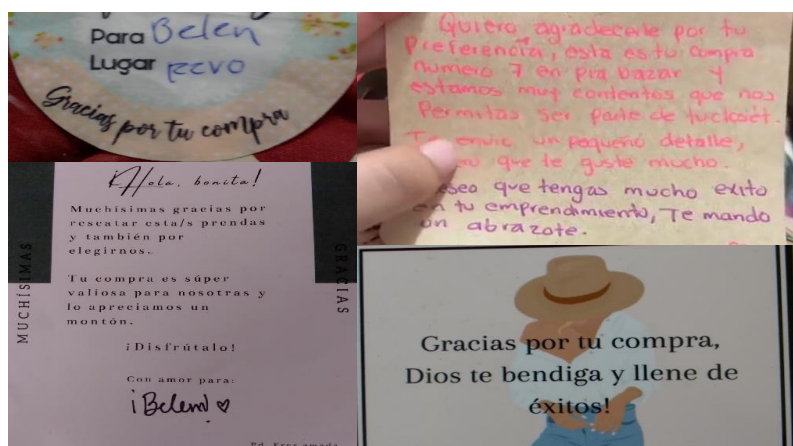 Para Belen
Lugar REVO
Gracias por tu compra
Quiero agradecerle por tu
Preferencia, esta es tu compra
numero 7 en pra bazar y
estamos muy contentos que nos
Permitas ser parte de tu closét.
Te envie un pequeño detalle,
que te guste mucho.
deseo que tengas mucho exito
en tu emprendimiento, Te mando
un abrazote.
¡Hola, bonita!
Muchísimas gracias por
rescatar esta/s prendas
y también por
elegirnos.
Tu compra es súper
valiosa para nosotras y
lo apreciamos un
montón.
¡Disfrútalo!
Con amor para:
¡Belem!
Pd. Eres amada
MUCHÍSIMAS
GRACIAS
Gracias por tu compra,
Dios te bendiga y llene de
éxitos!